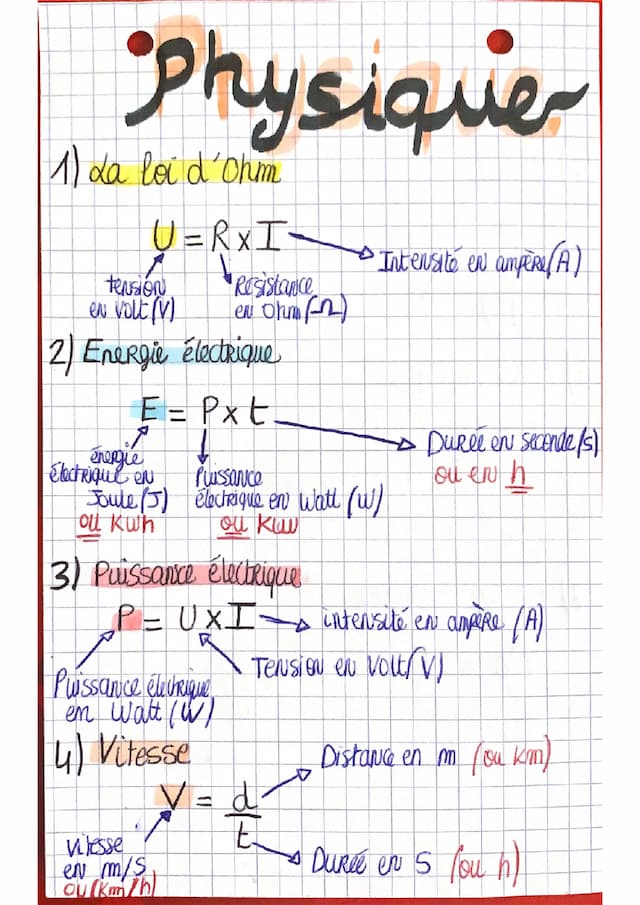 Physique
1) La loi d'Ohm
U = R x I
Intensité en ampère (A)
tension
en volt (V)
Resistance
en Ohm (Ω)
2) Energie électrique
E = P x t
énergie
électrique en
Joule (J)
ou kwh
Puissance
électrique en Watt (W)
ou Kw
Durée en seconde (s)
ou en h
3) Puissance électrique
P = U x I
intensité en ampère (A)
Tension en Volt (V)
Puissance électrique
en Watt (W)
4) Vitesse
V = d
t
Distance en m (ou km)
vitesse
en m/s
ou (km/h)
Durée en s (ou h)